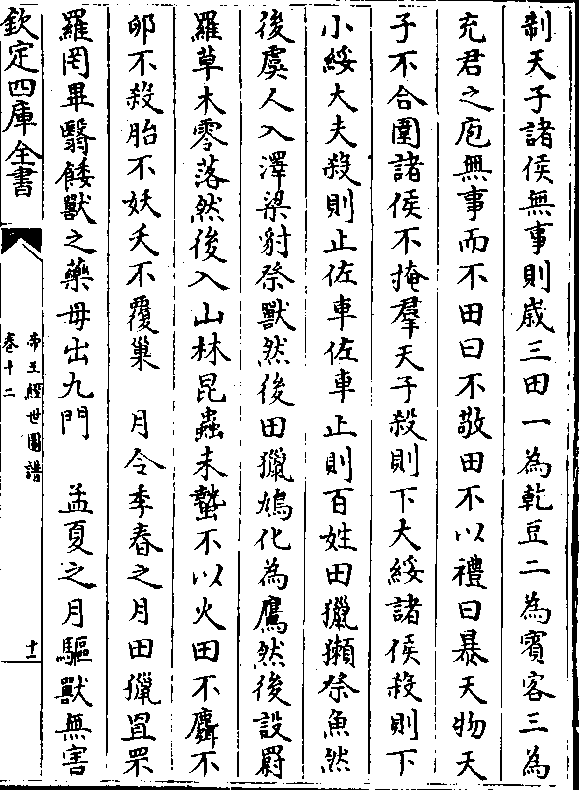 制天子諸侯無事則歳三田一為乾豆二為賓客三為
充君之庖無事而不田曰不敬田不以禮曰暴天物天
子不合圍諸侯不掩羣天子殺則下大綏諸侯殺則下
小綏大夫殺則止佐車佐車止則百姓田獵獺祭魚然
後虞人入澤梁豺祭獸然後田獵鳩化為鷹然後設罻
羅草木零落然後入山林昆蟲未蟄不以火田不麛不
卵不殺胎不妖夭不覆巢　月令季春之月田獵罝罘
羅罔畢翳餧獸之藥毋出九門　孟夏之月驅獸無害
欽定四庫全書
帝王經世圖譜
卷十二
十一